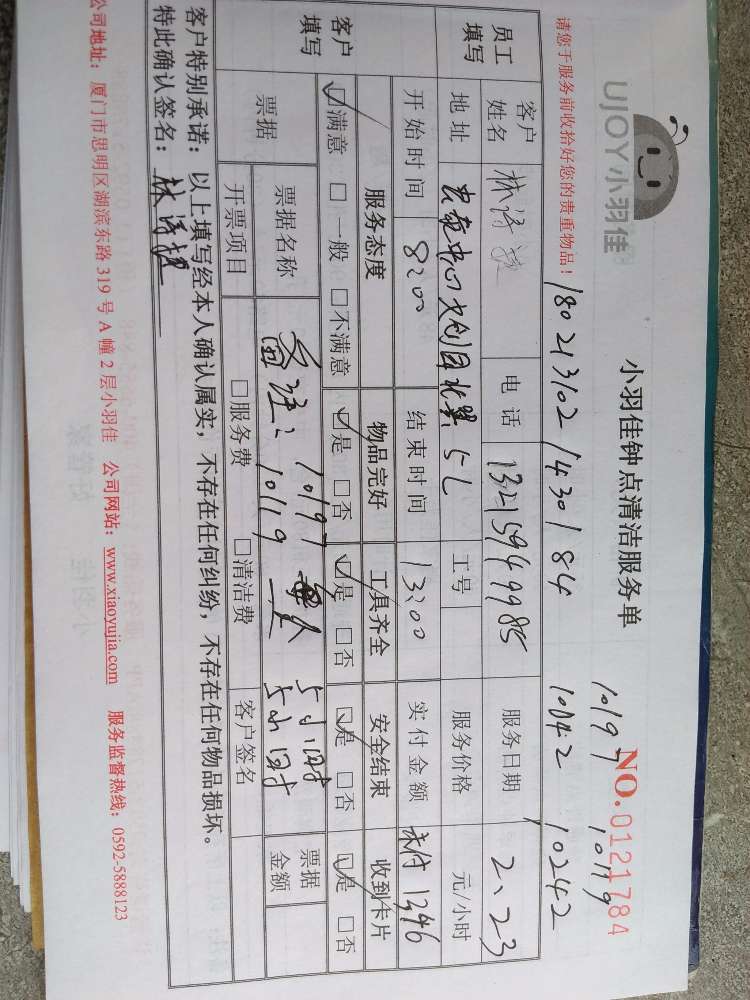 UJOY小羽佳
小羽佳钟点清洁服务单
NO.0121784
10197 10119
10242
请您于服务前收拾好您的贵重物品！
1802131021430184
员工填写
客户姓名 电话 13215949985 服务日期 2、23
地址 文创园北翼5L 工号 服务价格 元/小时
开始时间 8:00 结束时间 13:00 实付金额 未付1346
客户填写
服务态度 物品完好 工具齐全 安全结束 收到卡片
☑满意 □一般 □不满意 ☑是 □否 ☑是 □否 ☑是 □否 ☑是 □否
票据 票据名称 备注: 10197 5小时 票据金额
10119 5小时
开票项目 □服务费 □清洁费 客户签名
客户特别承诺：以上填写经本人确认属实，不存在任何纠纷，不存在任何物品损坏。
特此确认签名：林
公司地址：厦门市思明区湖滨东路319号A幢2层小羽佳 公司网站：www.xiaoyujia.com 服务监督热线：0592-5888123